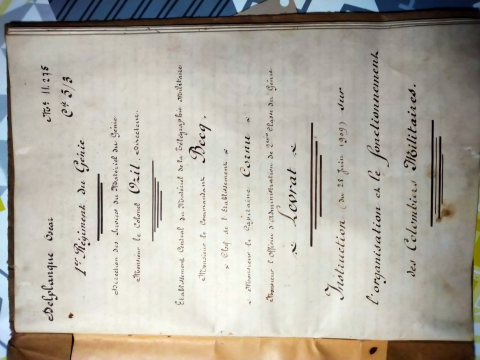 Delplanque Oscar
Mle 11.275
Cie 5/3
1er Régiment du Génie
Direction des Services du Matériel du Génie
Monsieur le Colonel Ozil, Directeur,
Etablissement Central du Matériel de la Télégraphie Militaire
Monsieur le Commandant Becq,
« Chef de l'Etablissement »
« Monsieur le Capitaine Cornu »
Monsieur l'Officier d'Administration de 2ème Classe du Génie
« Lovrat »
Instruction (du 28 juin 1909) sur
l'organisation et le fonctionnement
des Colombiers Militaires.